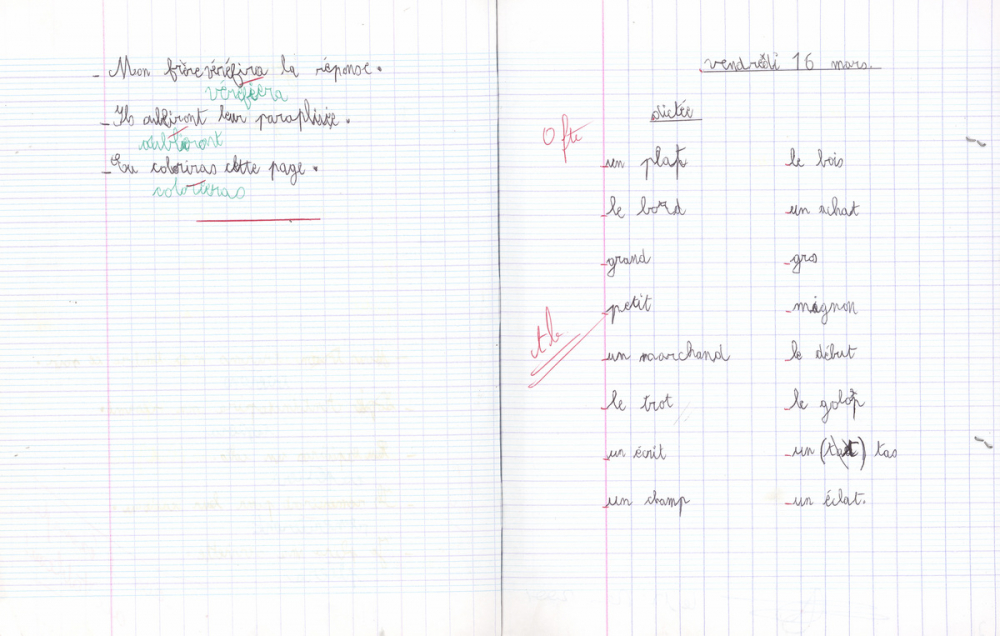 - Mon frère véréfira la réponse.
vérifiera
- Ils oubliront leur parapluie.
oublieront
- Tu coloriras cette page.
colorieras
vendredi 16 mars.
dictée
0 fte
- un plat
- le bois
- le bord
- un achat
- grand
- gros
- petit
- mignon
- un marchand
- le début
- le trot
- le galop
- un écrit
- un (tat) tas
- un champ
- un éclat.
tb